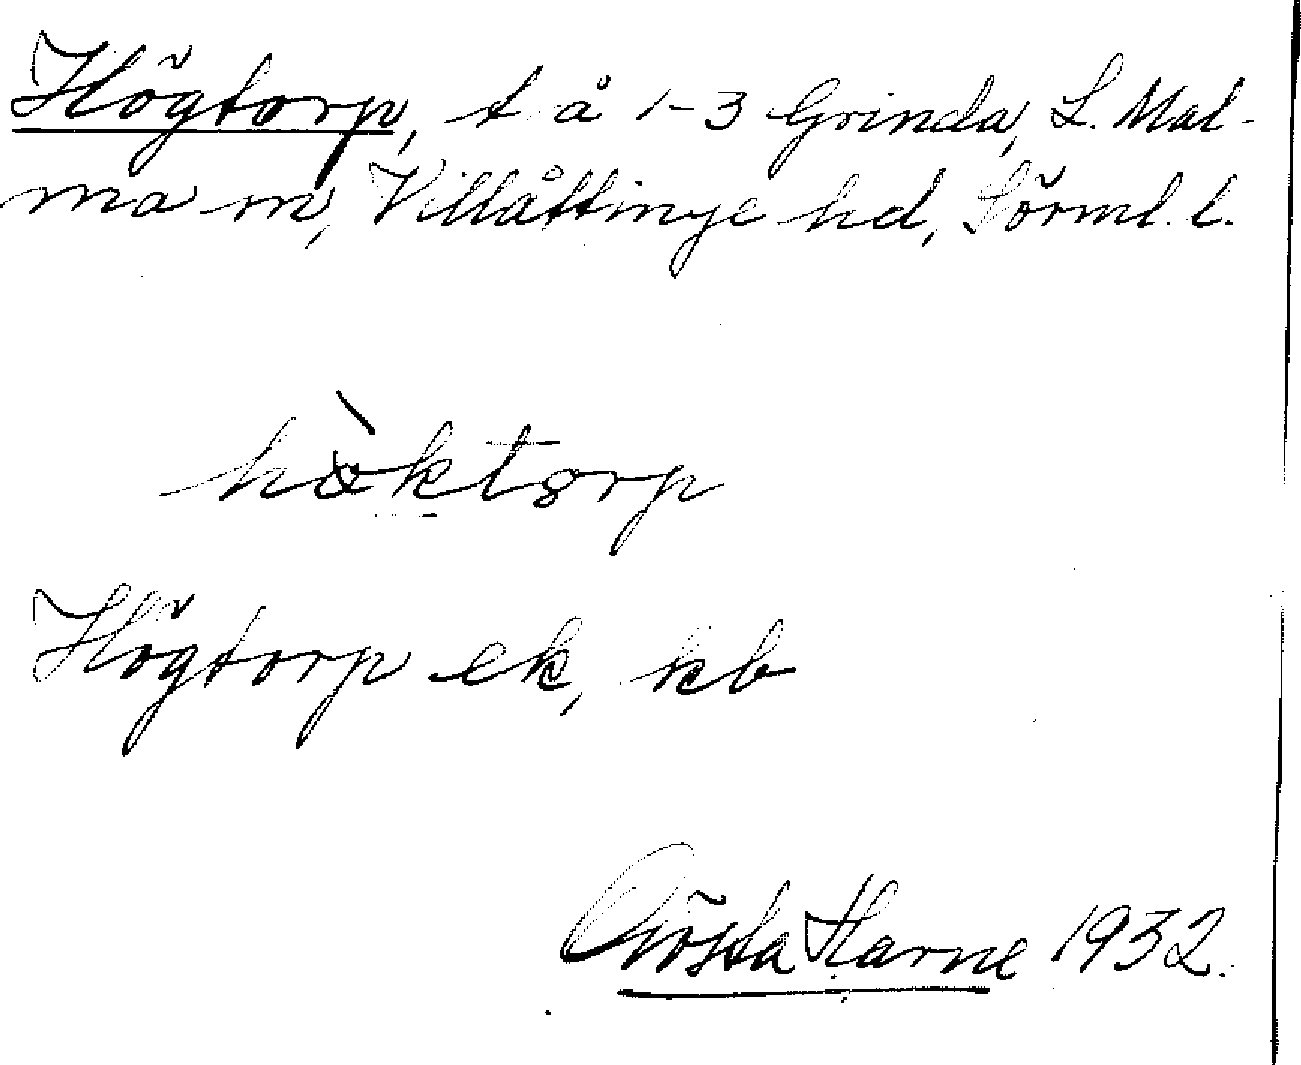 Högtorp, t å 1-3 Grinda, L. Mal-
ma sn, Villåttinge hd, Sörml. l.
hö̀ktorp
Högtorp ek, kb
Gösta Harne 1932.